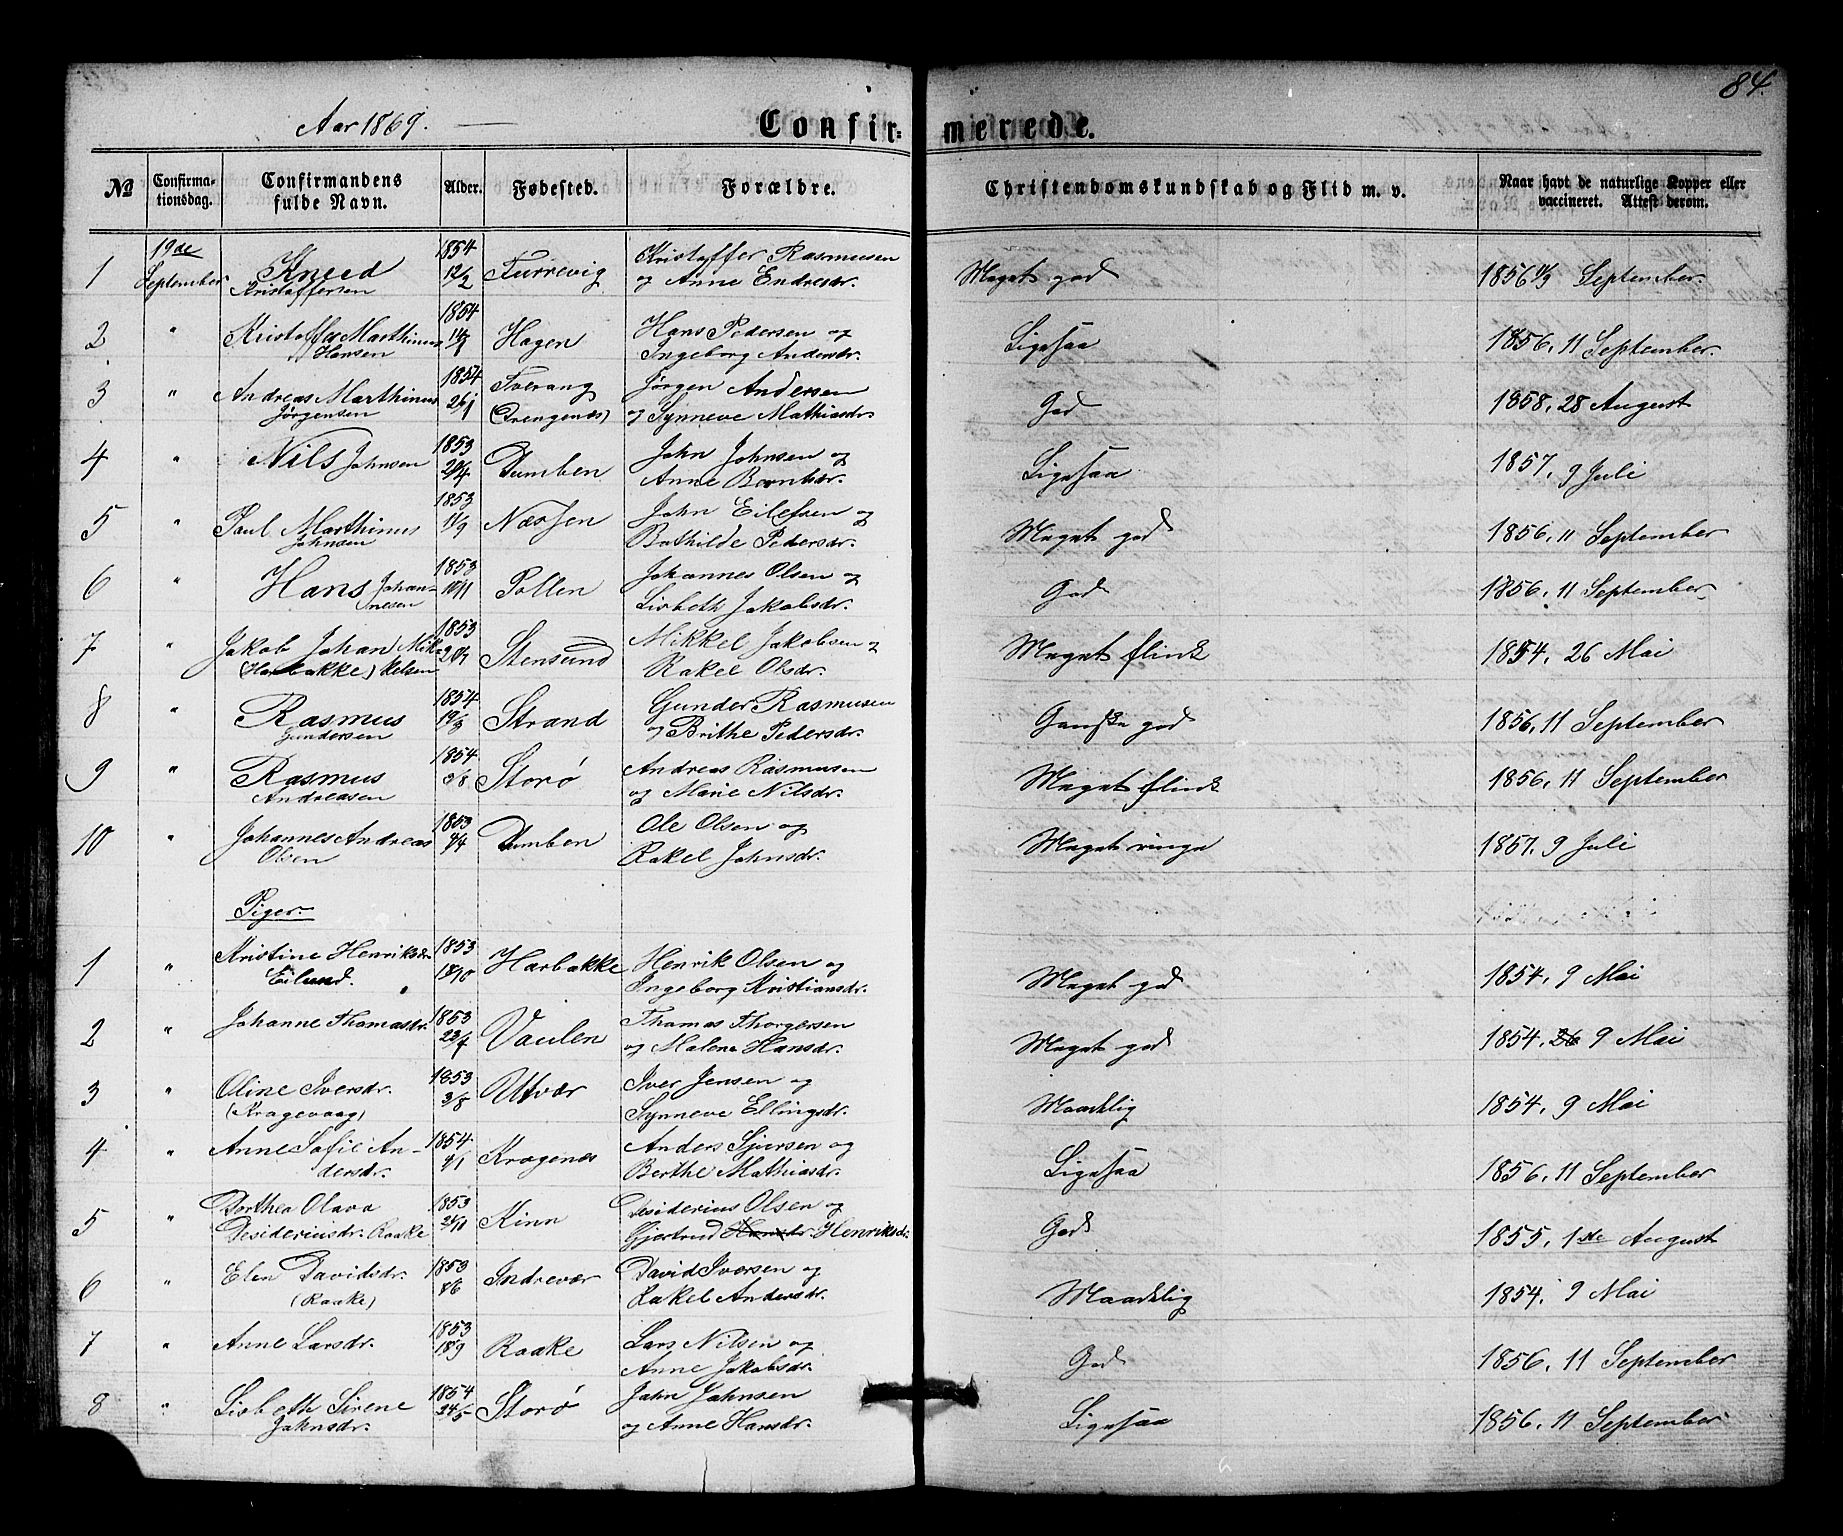 84.
Aar 1869.
Confirmerede.
No
Confirmationsdag.
Confirmandens fulde Navn.
Alder.
Fødested.
Forældre.
Christendomskundskab og Flid m. v.
Naar havt de naturlige Kopper eller vaccineret. Attest derom.
1 19de September Kneed Kristoffersen 1854 12/2 Furrevig Kristoffer Rasmussen og Anne Endresdr. Meget god 1856 11/9 September.
2 " Kristoffer Marthinus Hansen 1854 Hagen Hans Pedersen og Ingeborg Andersdr. Ligesaa 1856, 11 September.
3 " Andreas Marthinus Jørgensen 1854 26/1 Tverang (Drengenæs) Jørgen Andersen og Synneve Mathiasdr. God 1858, 28 August
4 " Nils Johnsen 1853 Dumben John Johnsen og Anne Ligesaa 1857, 9 Juli
5 " Paul Marthinus Johnsen 1853 11/9 Næssen John Eilefsen og Bothilde Pedersdr. Meget god 1856, 11 September
6 " Hans Johannesen 1853 10/11 Pollen Johannes Olsen og Lisbeth Jakobsdr. God 1856, 11 September
7 " Jakob Johan Mikkelsen (Harbakke) 1853 Stensund Mikkel Jakobsen og Rakel Olsdr. Meget flink 1854, 26 Mai
8 " Rasmus Gundersen 1854 19/3 Strand Gunder Rasmusen og Brithe Pedersdr. Ganske god 1856, 11 September
9 " Rasmus Andreasen 1854 Storø Andreas Rasmusen og Marie Nilsdr. Meget flink 1856, 11 September
10 " Johannes Andreas Olsen 1853 Dumben Ole Olsen og Rakel Johnsdr. Meget ringe 1857, 9 Juli
Piger.
1 " Kristine Henriksdr. Eilund. 1853 18/10 Harbakke Henrik Olsen og Ingeborg Kristiansdr. Meget god 1854, 9 Mai
2 " Johanne Thomasdr. 1853 Vaulen Thomas Thorgersen og Malene Hansdr. Meget god 1854, 26 9 Mai
3 " Oline Iversdr. (Kragevaag) 1853 3/8 Utvær Iver Jensen og Synneve Ellingsdr. Maadelig 1854, 9 Mai
4 " Anne Sofie Andersdr. 1854 Kragenæs Anders Sjursen og Berthe Mathiasdr. Ligesaa 1856, 11 September
5 " Dorthea Olava Desideriusdr. Raake 1853 Kinn Desiderius Olsen og Gjertrud Hansdr. Henriksdr. God 1855, 1ste August
6 " Elen Davidsdr. (Raake) 1853 Indrevær David Iversen og Rakel Andersdr. Maadelig 1854, 9 Mai
7 " Anne Larsdr. 1853 18/9 Raake Lars Nilsen og Anne Jakobsdr. God 1856, 11 September
8 " Lisbeth Sirene Johnsdr. 1854 24/5 Storø John Johnsen og Anne Hansdr. Ligesaa 1856, 11 September